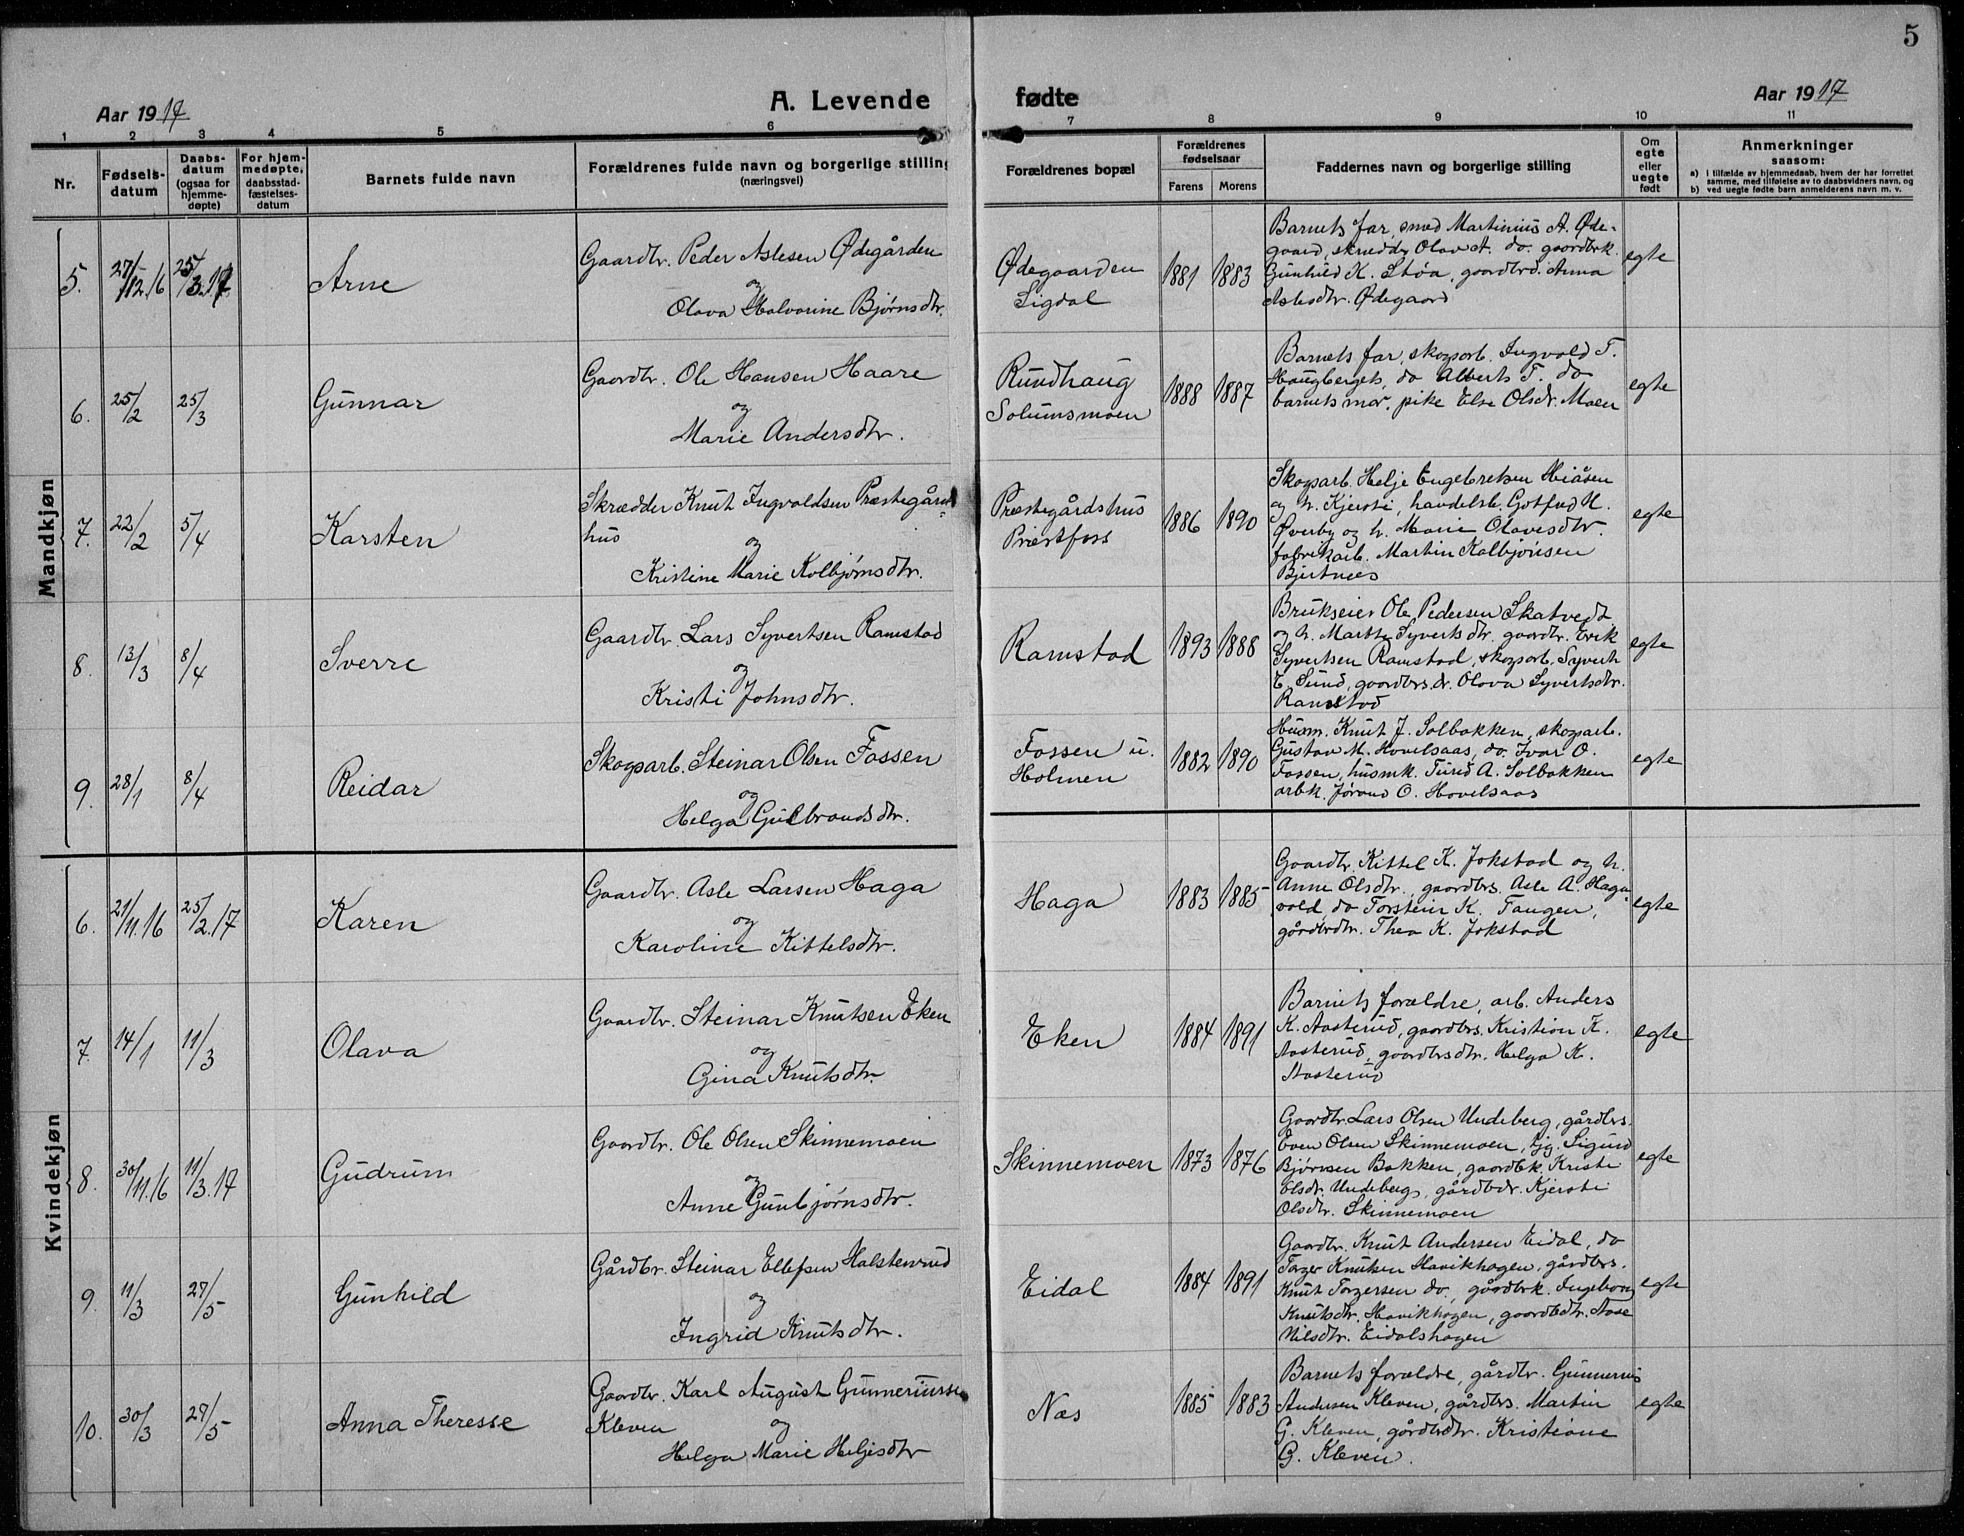 5
Aar 1917
A. Levende fødte
Aar 1917
1 2 3 4 5 6 7 8 9 10 11
Nr.
Fødsels-datum
Daabs-datum (ogsaa for hjemme-døpte)
For hjem-medøpte, daabsstad-fæstelses-datum
Barnets fulde navn
Forældrenes fulde navn og borgerlige stilling
(næringsvei)
Forældrenes bopæl
Forældrenes fødselsaar
Farens Morens
Faddernes navn og borgerlige stilling
Om egte eller uegte født
Anmerkninger
saasom:
a) i tilfælde av hjemmedaab, hvem der har forrettet
samme, med tilføielse av to daabsvidners navn, og
b) ved uegte fødte barn anmelderens navn m. v.
Mandkjøn
5. 27/12.16 25/3.17 Arne
Gaardbr. Peder Aslesen Ødegården
og
Olava Halvorine Bjørnsdtr.
Ødegaarden
Sigdal
1881 1883
Barnets far, smed Martinius A. Øde-
gaard, skrædder Olav A. do. gaardbrk.
Gunhild K. Støa, gaardbrd. Anna
Aslesdtr. Ødegaard
egte
6. 25/2 25/3 Gunnar
Gaardbr. Ole Hansen Haare
og
Marie Andersdtr.
Rundhaug
Solumsmoen
1888 1887
Barnets far, skogsarb. Ingvald T.
Haugbergets, do Alberts T. do
barnets mor, pike Else Olsdr. Moen
egte
7. 22/2 5/4 Karsten
Skrædder Knut Ingvaldsen Præstegårds-
hus
og
Kristine Marie Kolbjørnsdtr.
Præstegårdshus
Præstfoss
1886 1890
Skogsarb. Helje Engebretsen Hiåsen
og h. Kjersti, handelsb. Gotfred H.
Øverby og h. Marie Olavesdtr.
fabrikarb. Martin Kolbjønsen
Bjertnæs
egte
8. 13/3 8/4 Sverre
Gaardbr. Lars Syvertsen Ramstad
og
Kristi Johnsdtr.
Ramstad
1893 1888
Brukseier Ole Pedersen Skatvedt
og h. Marthe Syvertsdtr. gaardbr. Erik
Syvertsen Ramstad, skogsarb. Syvert
E. Sund, gaardbrs.dr. Olava Syvertsdtr.
Ramstad
egte
9. 28/1 8/4 Reidar
Skogsarb. Steinar Olsen Fossen
og
Helga Gulbrandsdtr.
Fossen u.
Holmen
1882 1890
Husm. Knut J. Solbakken, skogsarb.
Gustav M. Hovelsaas, do. Ivar O.
Fossen, husmk. Turid A. Solbakken
arbk. Jørand O. Hovelsaas
egte
Kvindekjøn
6. 21/11.16 25/2.17 Karen
Gaardbr. Asle Larsen Haga
og
Karoline Kittelsdtr.
Haga
1883 1885
Gaardbr. Kittel K. Jokstad og h.
Anne Olsdtr., gaardbrs. Asle A. Haga-
vold, do Torstein K. Tangen,
gårdbrdtr. Thea K. Jokstad
egte
7. 14/1 11/3 Olava
Gaardbr. Steinar Knutsen Eken
og
Gina Knutsdtr.
Eken
1884 1891
Barnets forældre, arb. Anders
K. Aasterud, gaardbrs. Kristian K.
Aasterud, gaardbrsdtr. Helga K.
Aasterud
egte
8. 30/11.16 11/3.17 Gudrum
Gaardbr. Ole Olsen Skinnemoen
og
Anne Gunbjørnsdtr.
Skinnemoen
1873 1876
Gaardbr. Lars Olsen Undeberg, gårdbrs.
Even Olsen Skinnemoen, tjg. Sigurd
Bjørnsen Bakken, gaardbk. Kristi
Elsdr. Undebergs, gårdbdr. Kjersti
Olsdtr. Skinnemoen
egte
9. 11/3 27/5 Gunhild
Gårdbr. Steinar Ellefsen Halstenrud
og
Ingrid Knutsdtr.
Eidal
1884 1891
Gaardbr. Knut Andersen Eidal, do
Torger Knutsen Havikhagen, gårdbrs.
Knut Torgersen do., gårdbrk. Ingeborg
Knutsdtr. Havikhagen, gaardbdtr. Aase
Nilsdtr. Eidalshagen
egte
10. 30/3 27/5 Anna Theresse
Gaardbr. Karl August Gunneriussen
Kleven
og
Helga Marie Heljesdtr
Næs
1885 1883
Barnets forældre, gårdbr. Gunnerius
Andersen Kleven, gårdbrs. Martin
G. Kleven, gårdbrdtr. Kristiane
G. Kleven.
egte